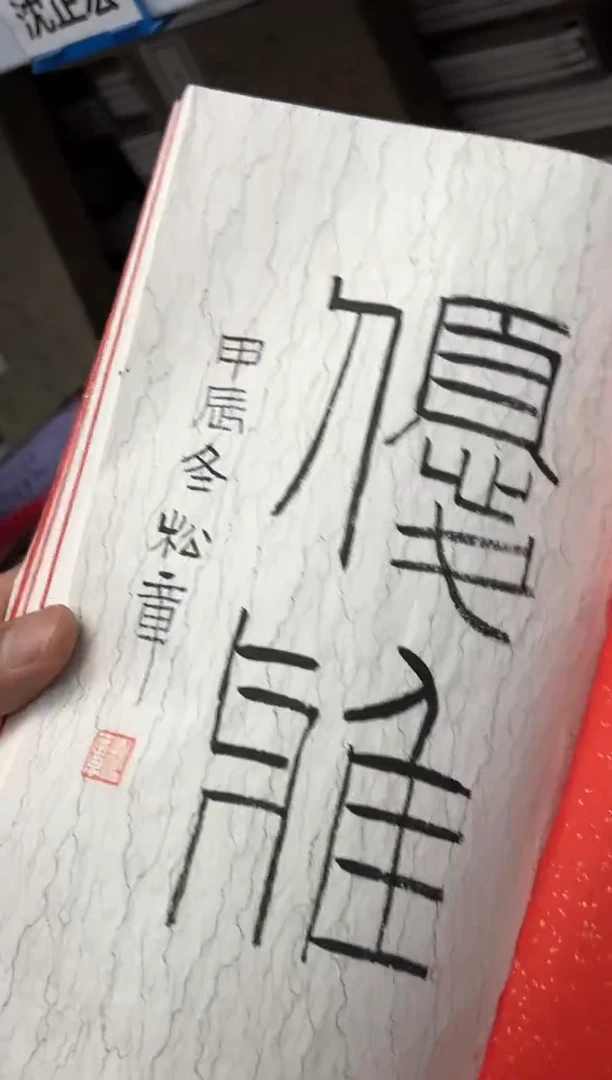 沈正宏
優
雅
甲辰冬松庸